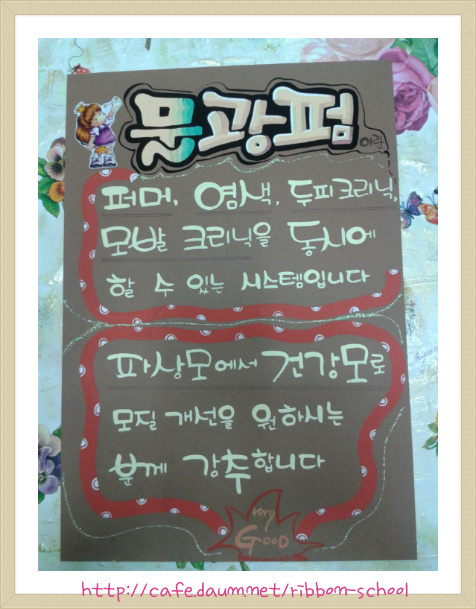 문광펌 이란
퍼머, 염색, 두피크리닉,
모발 크리닉을 동시에
할 수 있는 시스템입니다
파상모에서 건강모로
모질 개선을 원하시는
분께 강추합니다
Very
GOOD
http://cafe.daum.net/ribbom-school